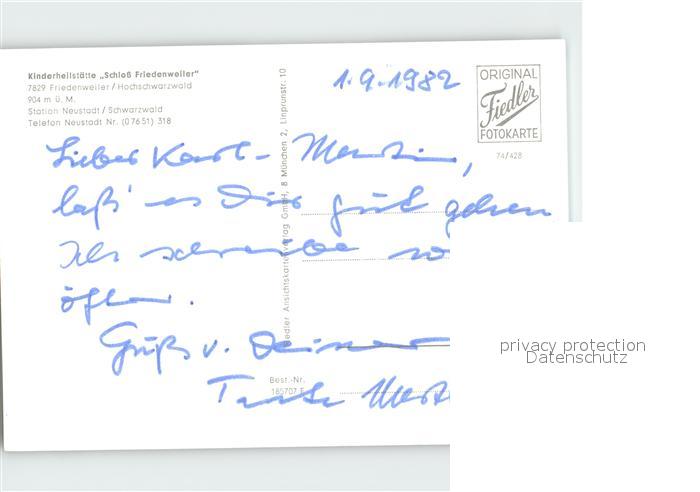 Kinderheilstätte „Schloß Friedenweiler"
7829 Friedenweiler / Hochschwarzwald
904 m ü. M.
Station Neustadt / Schwarzwald
Telefon Neustadt Nr. (07651) 318
1.9.1982
ORIGINAL
Fiedler
FOTOKARTE
74/428
Lieber Karl-Martin,
laß' es Dir gut gehen
Ich schreibe
öfter.
Gruß v. Deiner
Tante
Fiedler Ansichtskartenverlag GmbH, 8 München 2, Linprunstr. 10
Best.-Nr.
185707 F
privacy protection
Datenschutz